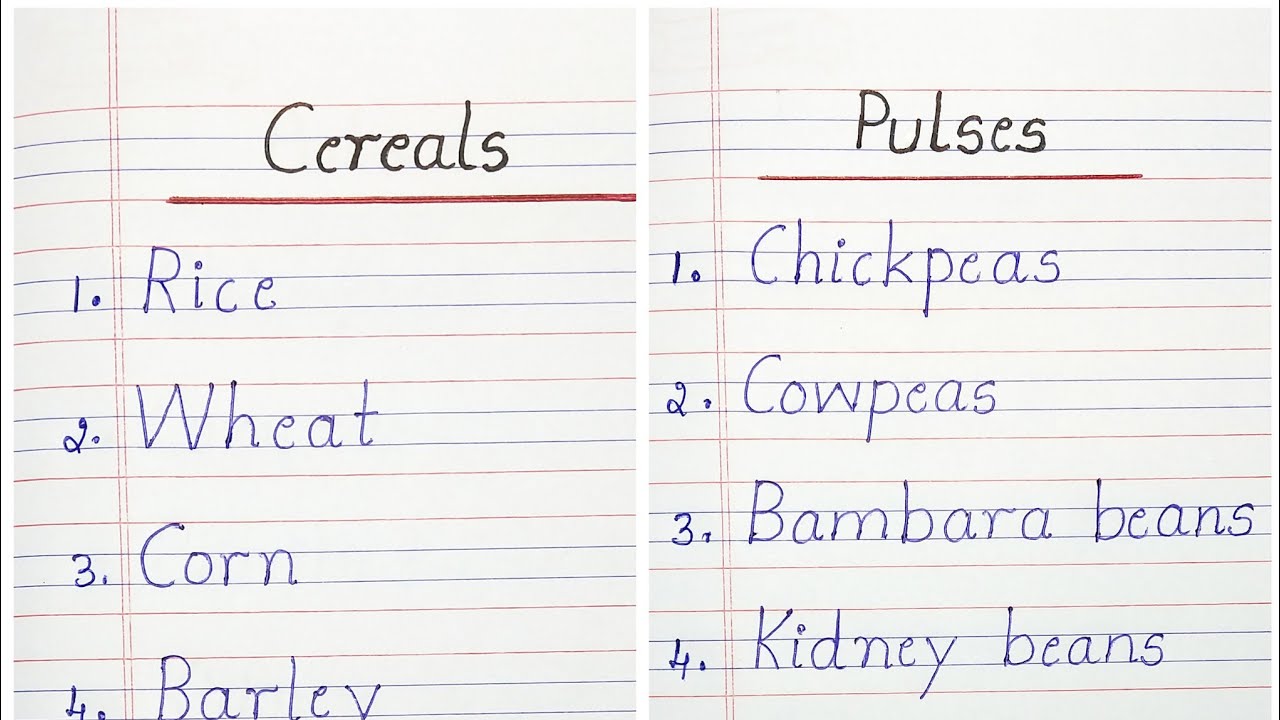 Cereals
1. Rice
2. Wheat
3. Corn
4. Barley
Pulses
1. Chickpeas
2. Cowpeas
3. Bambara beans
4. Kidney beans